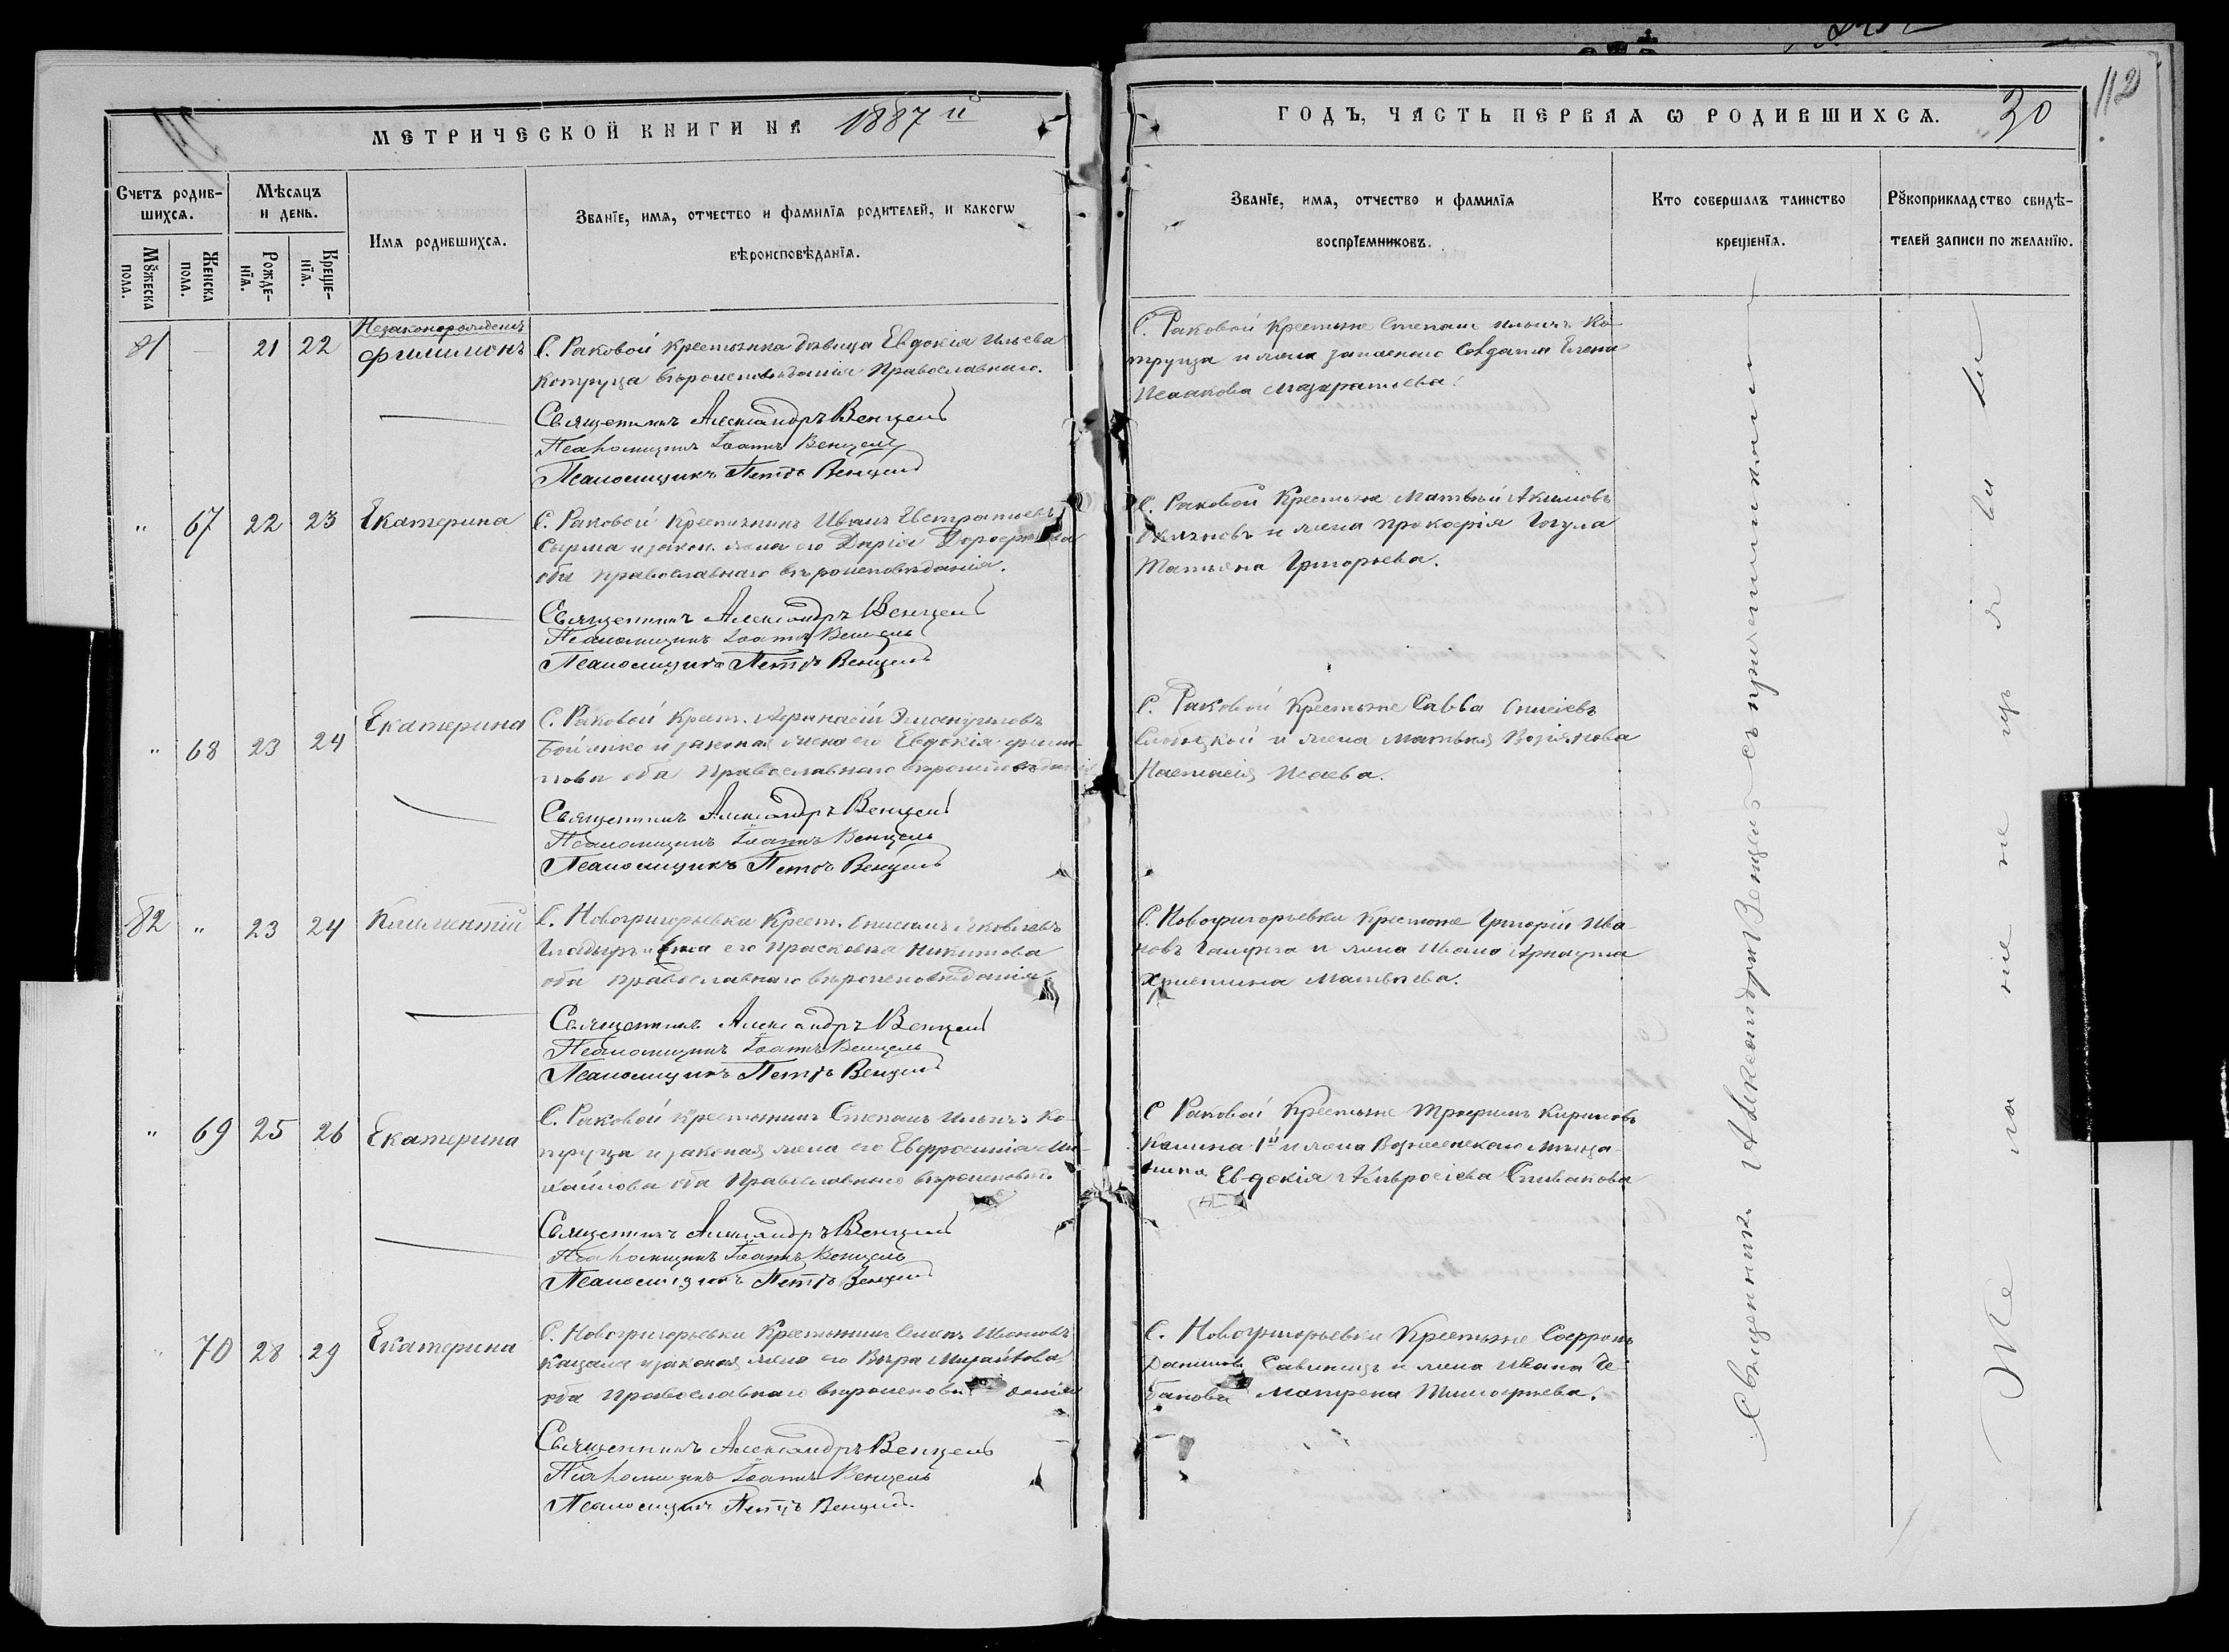 МЕТРИЧЕСКОЙ КНИГИ НА 1887 й
ГОДЪ, ЧАСТЬ ПЕРВАЯ Ѡ РОДИВШИХСѦ. 30
112
Счетъ родив-
шихсѧ.
Мѣсѧцъ
и день.
Имѧ родившихсѧ.
Званїе, имѧ, отчество и фамилїѧ родителей, и какогѡ
вѣроисповѣданїѧ.
Мꙋжеска
пола.
Женска
пола.
Рожде-
нїѧ.
Креще-
нїѧ.
Званїе, имѧ, отчество и фамилїѧ
воспрїемниковъ.
Кто совершалъ таинство
крещенїѧ.
Рꙋкоприкладство свидѣ-
телей записи по желанїю.
81 — 21 22
Незаконорожденъ
Филимонъ
С. Раковой Крестьянка дѣвица Евдокія Ильева
Копруца вѣроисповѣданія Православнаго.
Священникъ Александръ Венцель
Псаломщикъ Іоаннъ Венцель
Псаломщикъ Петръ Венцель
С. Раковой Крестьяне Степанъ Ильичъ Ко-
пруца и жена запаснаго Солдата Елена
„ 67 22 23 Екатерина
С. Раковой Крестьянинъ Иванъ Евстратіевъ
Сырма и закон. жена его Дарія
оба православнаго вѣроисповѣданія.
Священникъ Александръ Венцель
Псаломщикъ Іоаннъ Венцель
Псаломщикъ Петръ Венцель
С. Раковой Крестьяне Матвѣй Акимовъ
и жена Прокофія Гогула
Татьяна Григорьева.
„ 68 23 24 Екатерина
С. Раковой Крест. Афанасій Эмануиловъ
Бойлико и законая жена его Евдокія
оба Православнаго вѣроисповѣданія
Священникъ Александръ Венцель
Псаломщикъ Іоаннъ Венцель
Псаломщикъ Петръ Венцель
С. Раковой Крестьяне Савва
и жена Матвѣя
Настасія Исаева.
82 „ 23 24 Климентій
С. Новогригорьевка Крест. Яковлевъ
его Прасковья Никитова
оба православнаго вѣроисповѣданія.
Священникъ Александръ Венцель
Псаломщикъ Іоаннъ Венцель
Псаломщикъ Петръ Венцель
С. Новогригорьевки Крестьяне Григорій Ива-
новъ и жена Ивана Арнаута
Христина Матвѣева.
„ 69 25 26 Екатерина
С. Раковой Крестьянинъ Степанъ Ильичъ Ко-
пруца и законая жена его Евфросинія Ми-
хайлова оба Православнаго вѣроисповѣд.
Священникъ Александръ Венцель
Псаломщикъ Іоаннъ Венцель
Псаломщикъ Петръ Венцель
С Раковой Крестьяне Трифонъ Кириловъ
Калина 1й и жена Вознесенскаго мѣща-
нина Евдокія Амвросіева Спивакова
„ 70 28 29 Екатерина
С. Новогригорьевки Крестьянинъ Семенъ Ивановъ
Кацали и законая жена его Вѣра Михайлова
оба Православнаго вѣроисповѣданія
Священникъ Александръ Венцель
Псаломщикъ Іоаннъ Венцель
Псаломщикъ Петръ Венцель
С. Новогригорьевки Крестьяне Софронъ
Даниловъ и жена Ивана Че-
банова Матрена Тимофеева.
Священникъ Александръ Венцель съ причетниками